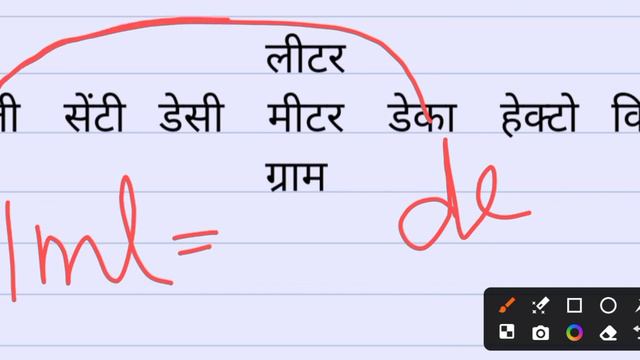 लीटर
सेंटी डेसी मीटर डेका हेक्टो
ग्राम
1ml = de